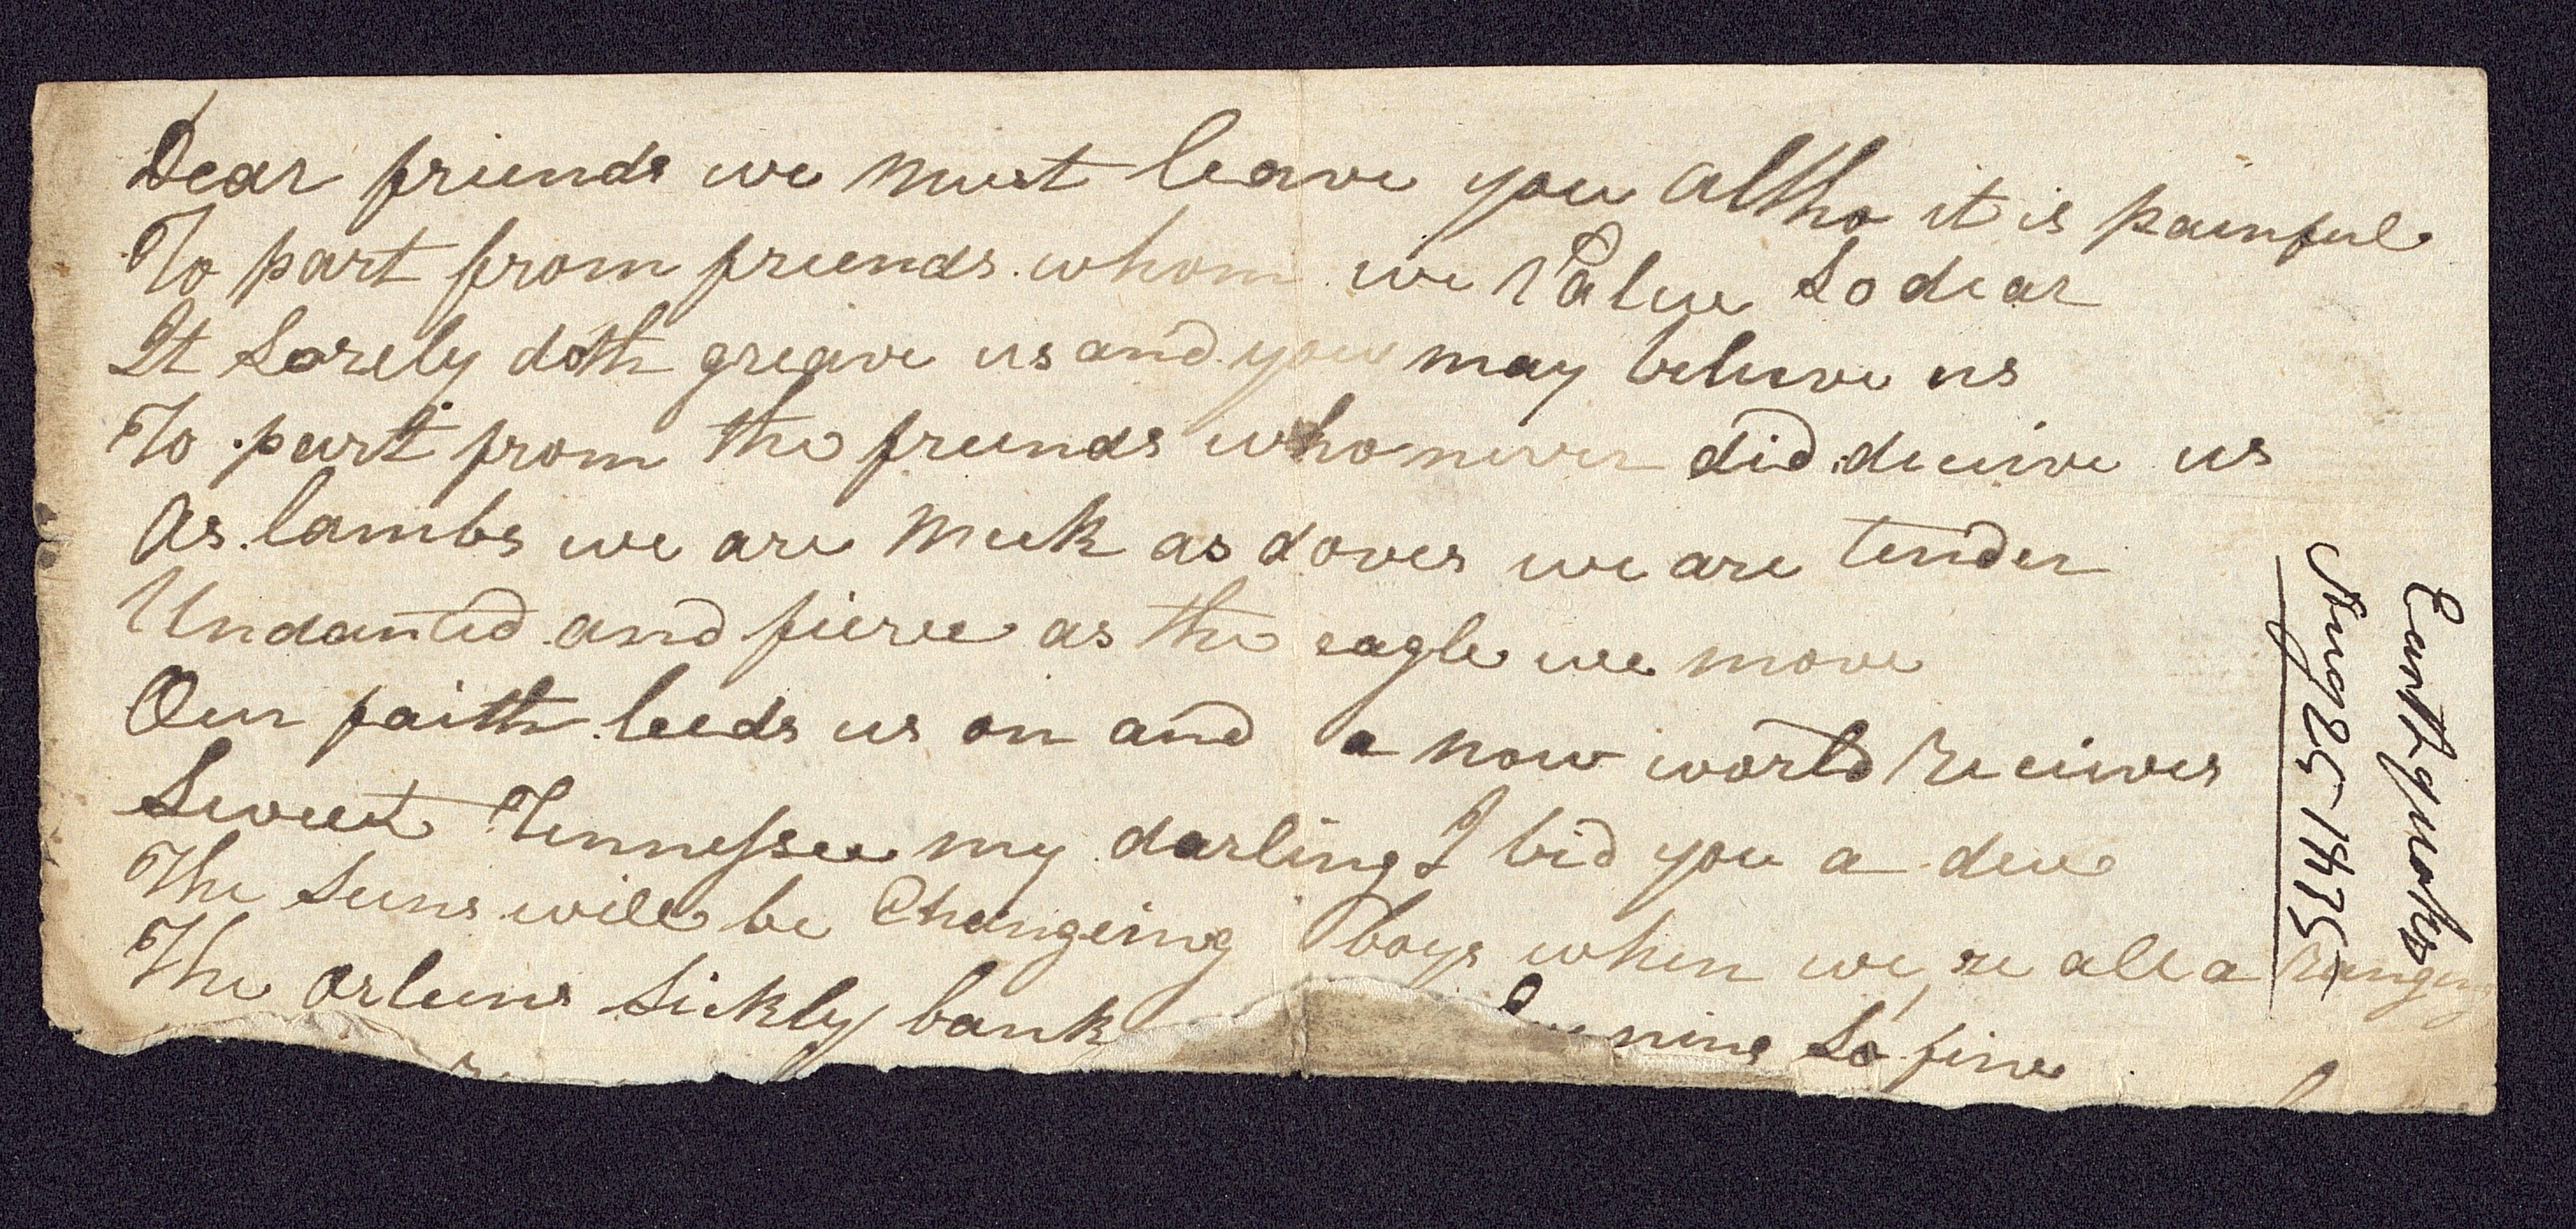 Dear friends we must leave you altho it is painful
To part from friends whom we Value So dear
It Sorely doth greave us and you may beleive us
To part from the freinds who never did deceive us
As lambs we are Meek as doves we are tender
Undanted and fierce as the eagle we move
Our faith leeds us on and a new world receives
Sweet Tennessee my darling I bid you a deu
The Seens will be Changeing boys when we,re all a rangeing
The Orleens Sickly bank nine So fine
Earthquakes
Aug 25 1875